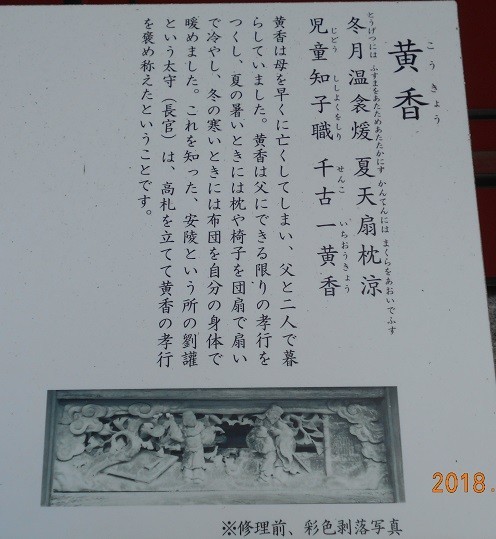 黄香
こうきょう
とうげつには ふすまをあたためあたたかにす かんてんには まくらをあおいでふす
冬月温衾煖 夏天扇枕涼
じどう ししよくをしり せんこ いちおうきょう
児童知子職 千古一黄香
黄香は母を早くに亡くしてしまい、父と二人で暮
らしていました。黄香は父にできる限りの孝行を
つくし、夏の暑いときには枕や椅子を団扇で扇い
で冷やし、冬の寒いときには布団を自分の身体で
暖めました。これを知った、安陵という所の劉讙
という太守（長官）は、高札を立てて黄香の孝行
を褒め称えたということです。
※修理前、彩色剥落写真
2018.